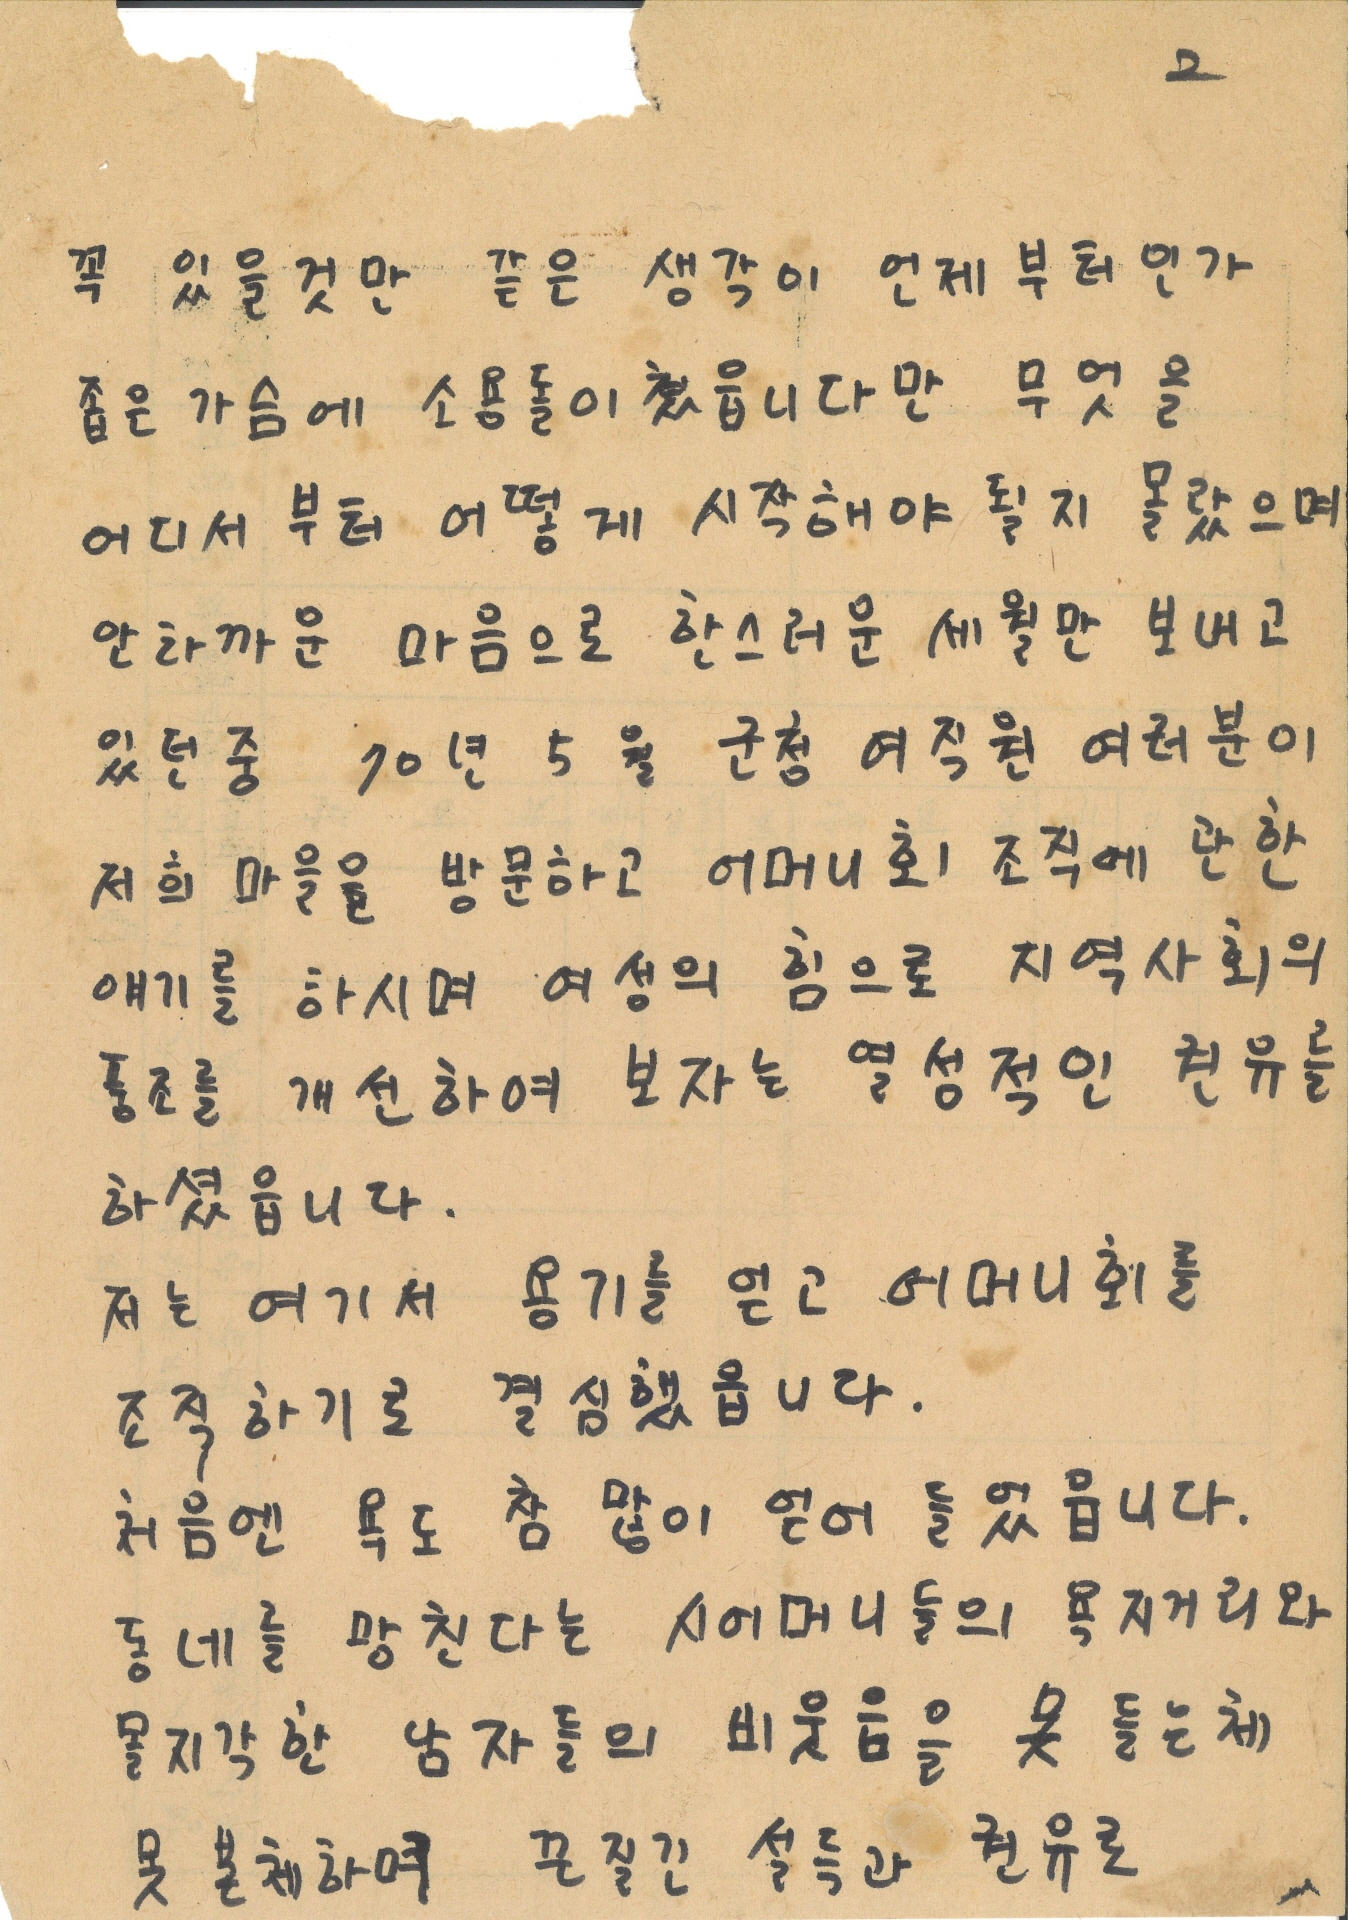 2
꼭 있을것만 같은 생각이 언제부터인가
좁은 가슴에 소용돌이쳤읍니다만 무엇을
어디서부터 어떻게 시작해야 될지 몰랐으며
안타까운 마음으로 한스러운 세월만 보내고
있던중 70년 5월 군청 여직원 여러분이
저희 마을을 방문하고 어머니회 조직에 관한
얘기를 하시며 여성의 힘으로 지역사회의
풍조를 개선하여 보자는 열성적인 권유를
하셨읍니다.
저는 여기서 용기를 얻고 어머니회를
조직하기로 결심했읍니다.
처음엔 욕도 참 많이 얻어 들었읍니다.
동네를 망친다는 시어머니들의 욕지거리와
몰지각한 남자들의 비웃음을 못 들는체
못 본체하며 끈질긴 설득과 권유로